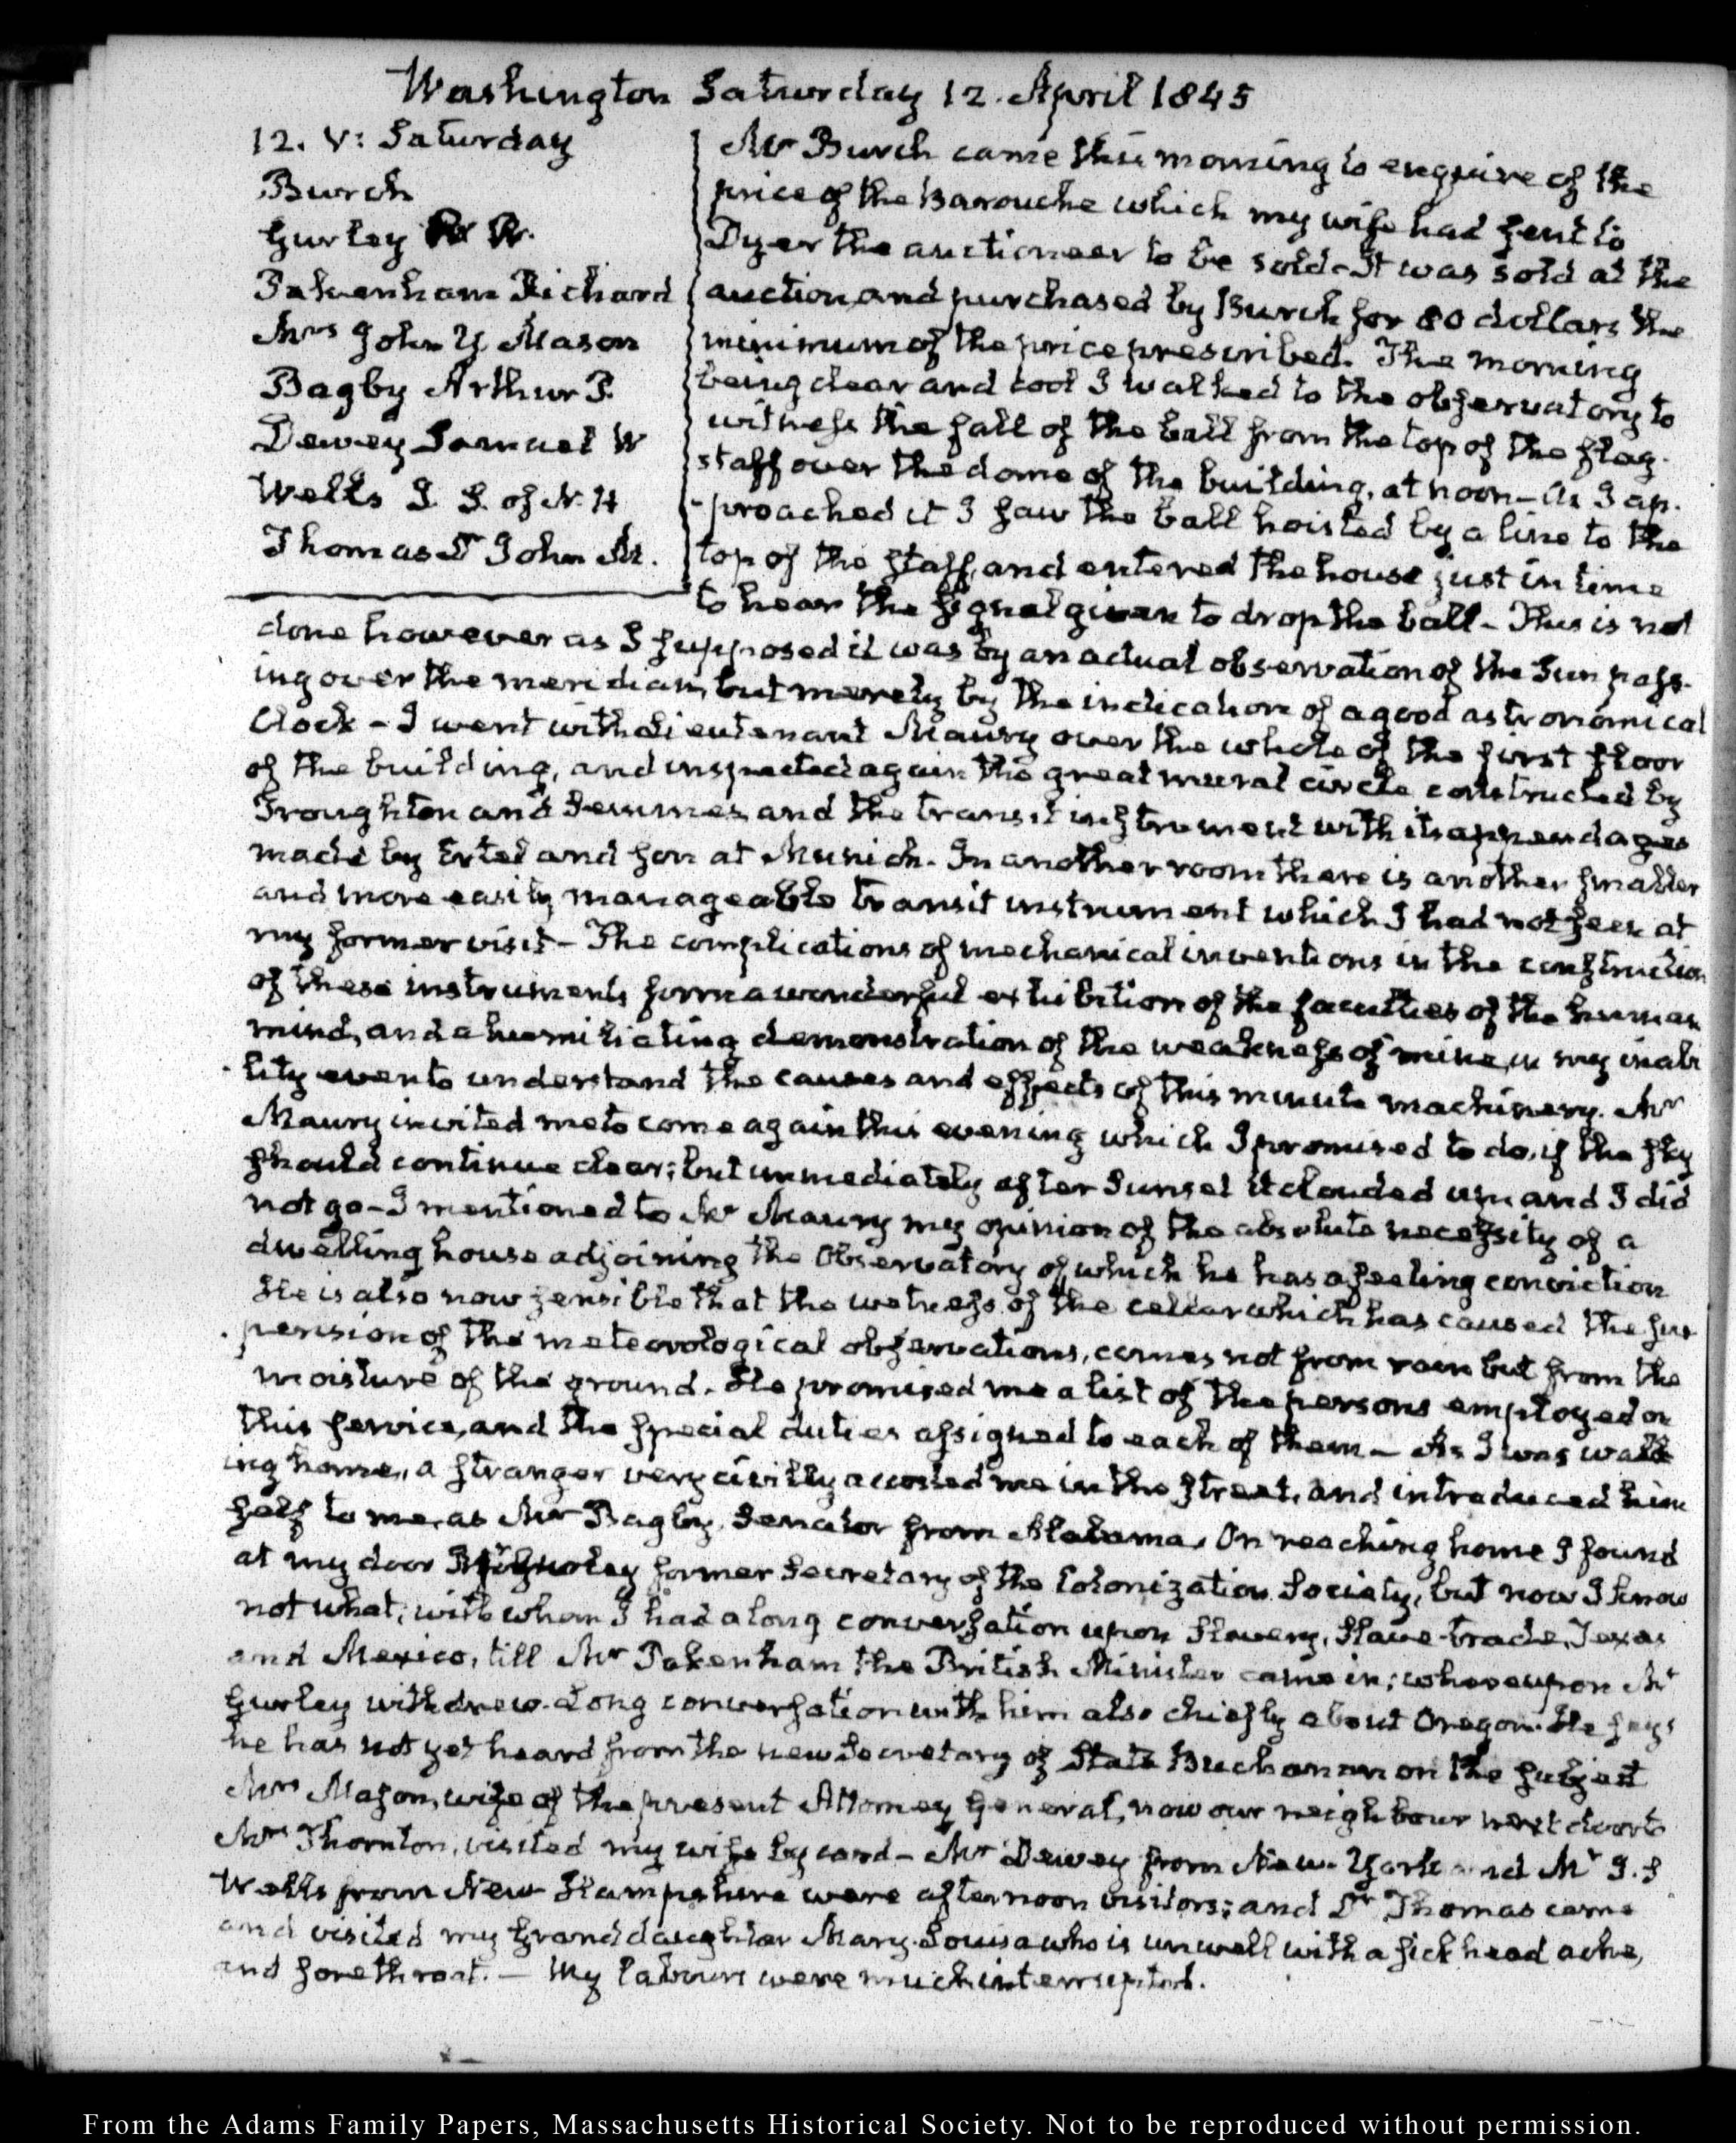 Washington Saturday 12. April 1845
12. V: Saturday
Burch
Gurley R. R.
Pakenham Richard
Mrs John Y. Mason
Bagby Arthur P.
Dewey Samuel W
Wells I. S. of N. H
Thomas Dr John M.
Mr Burch came this morning to enquire of the
price of the Barouche which my wife had sent to
Dyer the auctioneer to be sold - It was sold at the
auction, and purchased by Burch for 80 dollars the
minimum of the price prescribed. The morning
being clear and cool I walked to the observatory to
witness the fall of the ball from the top of the flag-
staff over the dome of the building, at noon - As I ap-
-proached it I saw the ball hoisted by a line to the
top of the staff, and entered the house just in time
to hear the signal given to drop the ball - This is not
done however as I supposed it was by an actual observation of the Sun pass-
ing over the meridian, but merely by the indication of a good astronomical
Clock - I went with Lieutenant Maury over the whole of the first floor
of the building, and inspected again the great mural circle constructed by
Troughton and Simmes, and the transit instrument with its appendages
made by Ertel and Son at Munich. In another room there is another smaller
and more easily manageable transit instrument which I had not seen at
my former visit - The complications of mechanical inventions in the construction
of these instruments form a wonderful exhibition of the faculties of the human
mind, and a humiliating demonstration of the weakness of mine, in my inabi
-lity even to understand the causes and effects of this minute machinery. Mr
Maury invited me to come again this evening which I promised to do, if the sky
should continue clear; but immediately after Sunset it clouded up and I did
not go - I mentioned to Mr Maury my opinion of the absolute necessity of a
dwelling house adjoining the Observatory of which he has a feeling conviction
He is also now sensible that the wetness of the cellar which has caused the sus
-pension of the meteorological observations, comes not from rain but from the
moisture of the ground. He promised me a list of the persons employed on
this service, and the special duties assigned to each of them - As I was walk
ing home, a stranger very civilly accosted me in the street, and introduced him
self to me, as Mr Bagby, Senator from Alabama. On reaching home I found
at my door Mr Gurley former Secretary of the Colonization Society, but now I know
not what, with whom I had a long conversation upon Slavery, Slave-trade, Texas
and Mexico, till Mr Pakenham the British Minister came in; whereupon Mr
Gurley withdrew. Long conversation with him also chiefly about Oregon. He says
he has not yet heard from the new Secretary of State Buchanan on the subject
Mrs Mason, wife of the present Attorney General, now our neighbour next door to
Mrs Thornton, visited my wife by card - Mr Dewey from New-York and Mr I. S
Wells from New Hampshire were afternoon visitors; and Dr Thomas came
and visited my Granddaughter Mary-Louisa who is unwell with a sick head ache,
and sore throat. - My labours were much interrupted.
From the Adams Family Papers, Massachusetts Historical Society. Not to be reproduced without permission.